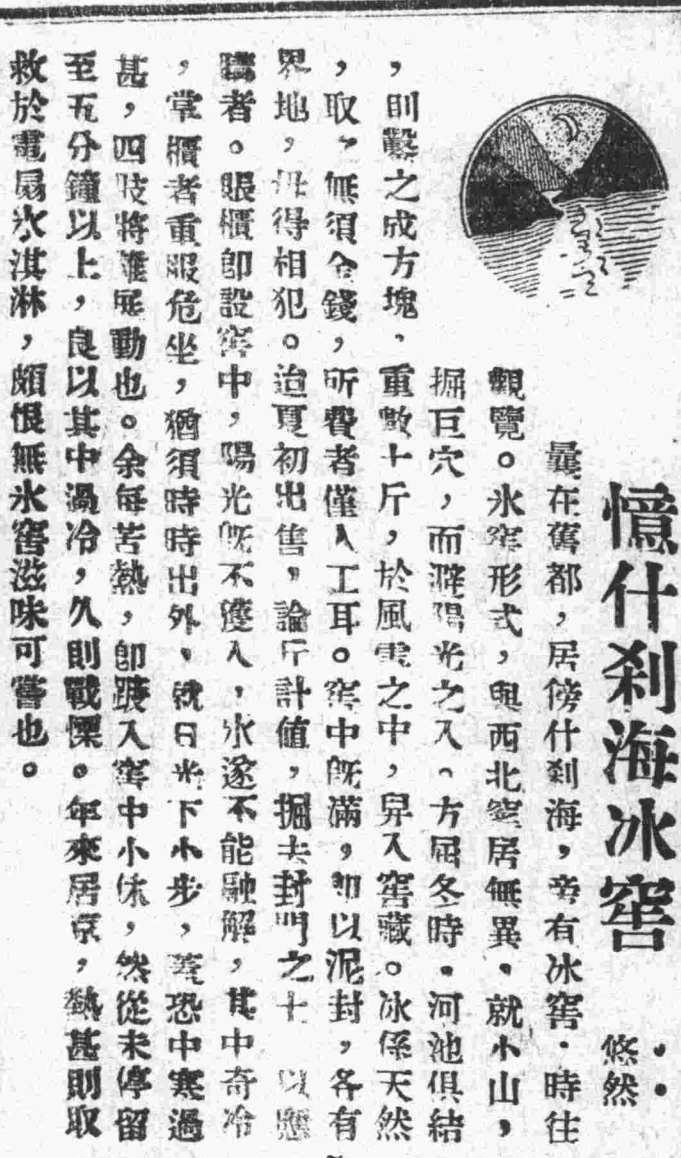 憶什刹海冰窖
悠然
曩在舊都，居傍什刹海，旁有冰窖．時往
觀覽。氷窖形式，與西北窰居無異．就小山，
掘巨穴，而避陽光之入。方屆冬時．河池俱結
，則鑿之成方塊．重數十斤，於風雪之中，舁入窖藏。冰係天然
，取，無須金錢，所費者僅人工耳。窖中旣滿，卽以泥封，各有
界地，毋得相犯。迨夏初出售，論斤計値，掘去封門之土 以應
購者。賬櫃卽設窖中，陽光旣不獲入，氷遂不能融解，其中奇冷
，掌櫃者重服危坐，猶須時時出外，就日光下小步，蓋恐中寒過
甚，四肢將難展動也。余每苦熱，卽踱入窖中小休，然從未停留
至五分鐘以上，良以其中過冷，久則戰慄。年來居京，熱甚則取
救於電扇氷淇淋，頗恨無氷窖滋味可嘗也。